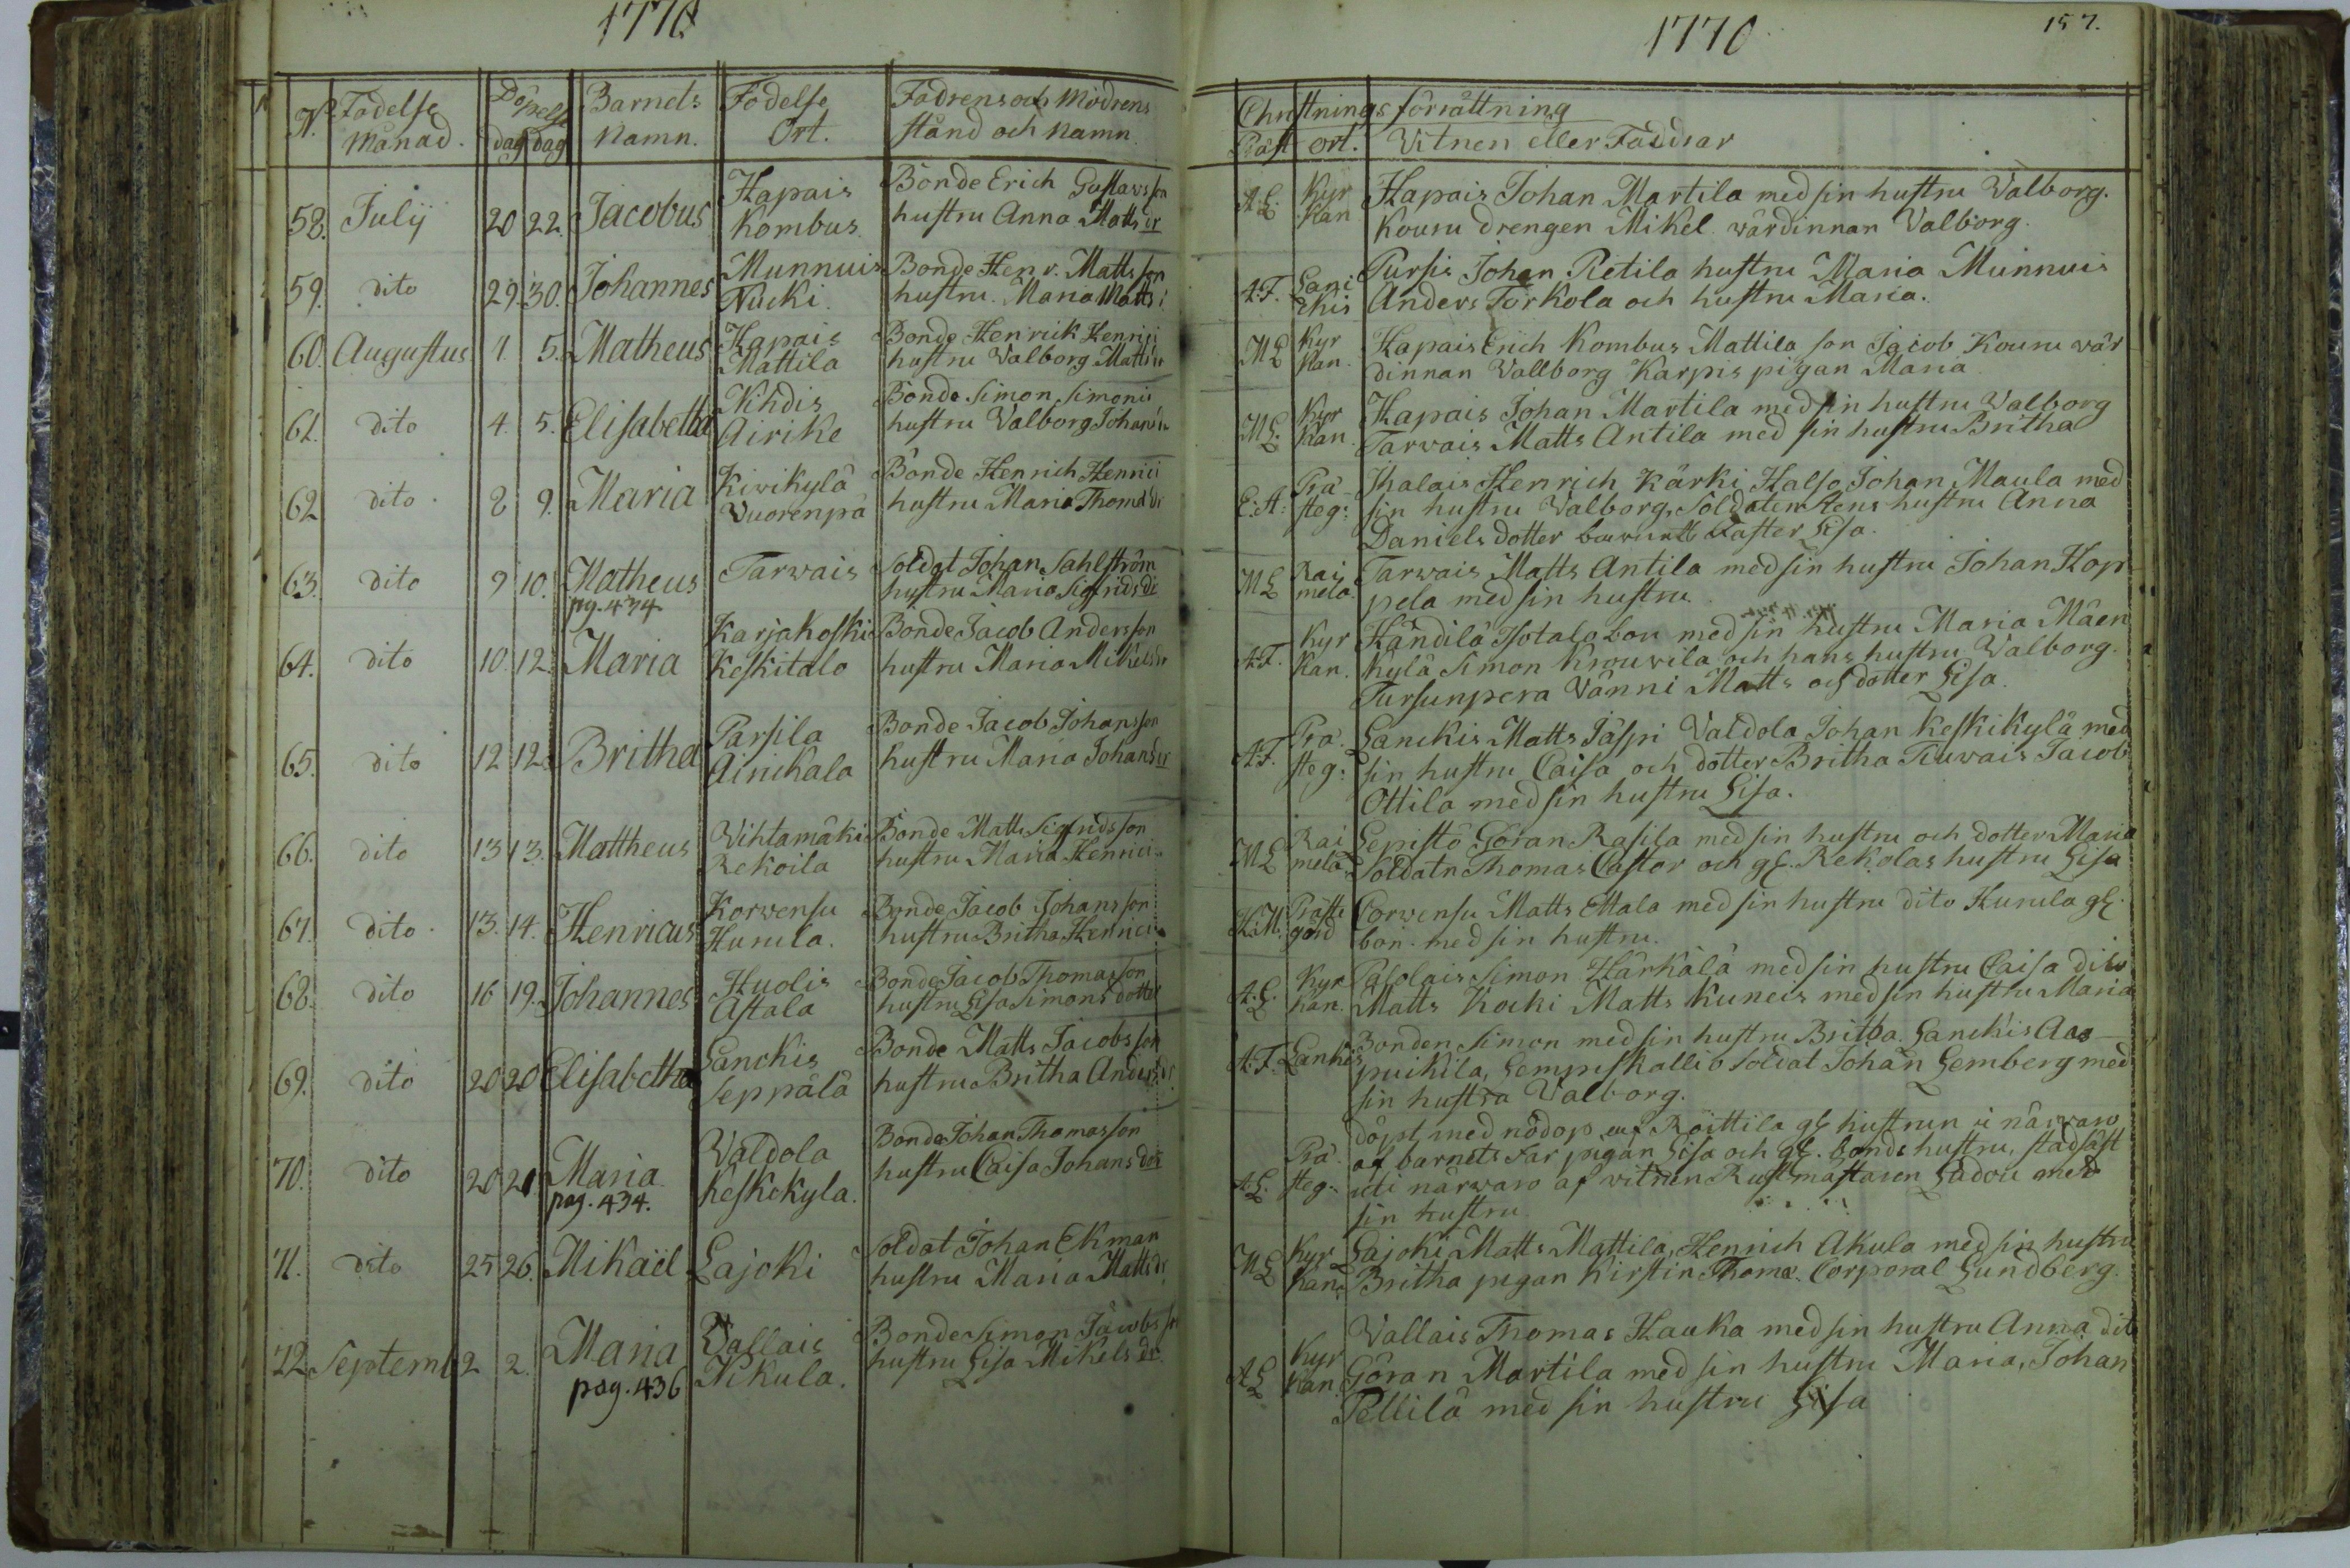 1770
N:o Födelse Månad. Döpelse dag dag Barnets Namn. Födelse Ort. Fadrens och Modrens stånd och namn.
58. Julij 20 22. Jacobus Hapais Kombus. Bonde Erich Gustavsson hustru Anna Mattsdr
59. dito 29. 30. Johannes Munnuis Nucki. Bonde Henr. Mattsson hustru Maria Matts
60. Augustus 1. 5. Matheus Hapais Mattila Bonde Henrick Henrici hustru Valborg Mattsdr
61. dito 4. 5. Elisabetha Nihdis Airike Bonde Simon Simonis hustru Valborg Johansdr
62 dito 8 9. Maria Kivikylä Vuorenpä Bonde Henrich Henrici hustru Maria Thomædr
63. dito 9 10. Matheus pg. 434 Tarwais Soldat Johan Sahlström hustru Maria Sigfridsdr
64. dito 10. 12. Maria Karjakoski Keskitalo Bonde Jacob Andersson hustru Maria Mikelsdr
65. dito 12 12. Britha Parsila Ainikala Bonde Jacob Johansson hustru Maria Johansdr
66. dito 13 13. Mattheus Wihtamäki Rekoila Bonde Matts Sigfridsson hustru Maria Henrici
67. dito 13. 14. Henricus Korvensu Hurula. Bonde Jacob Johansson hustru Britha Henrici
68. dito 16 19. Johannes Huolis Astala Bonde Jacob Thomasson hustru Lisa Simons dotter
69. dito 20 20 Elisabetha Lanckis Seppälä Bonde Matts Jacobsson hustru Britha Andersdr
70. dito 20 21. Maria pag. 434. Valdola Keskikyla. Bonde Johan Thomasson hustru Caisa Johansdor
71. dito 25 26. Mikaël Lajoki Soldat Johan Ekman hustru Maria Mattsdr
72. Septemb 2 2. Maria pag. 436 Vallais Nikula. Bonde Simon Jacobsson hustru Lisa Mikelsdr
1770
157.
Christnings förrättning
Präst ort. Vitnen eller Faddrar
A.L. Kyrkan Hapais Johan Martila med sin hustru Valborg.
Kouru drengen Mikel wärdinnan Valborg.
A.F. Lanckis Pursis Johan Retila hustru Maria Munnuis
Anders Torkola och hustru Maria.
ML Kyrkan. Hapais Erich Kombus Mattila son Jacob Kouru wär
dinnan Vallborg Karpis pigan Maria
ML. Kyrkan. Hapais Johan Martila med sin hustru Valborg
Tarwais Matts Antila med sin hustru Britha
E.A: Prästeg: Ihalais Henrich Kärki, Halso Johan Maula med
sin hustru Valborg, Soldaten Rens hustru Anna
Daniels dotter Lisa.
ML Raimela. Tarwais Matts Antila med sin hustru Johan Hop
pela med sin hustru.
A.F. Kyrkan. Händilä Isotalo bon med sin hustru Maria Mäen
kylä Simon Krouvila och hans hustru Valborg.
Tursunpera Vänni Matts och dotter Lisa.
A.F. Prästeg: Lanckis Matts Jäspi Valdola Johan Keskikylä med
sin hustru Caisa och dotter Britha Jacob
Ottila med sin hustru Lisa.
ML Raimela. Lepistö Göran Rasila med sin hustru och dotter Maria
Soldatn Thomas Castor och gl. Rekolas hustru Lisa
H.M. Prästegård Corvensu Matts Ettala med sin hustru dito Hurula gl.
bon med sin hustru.
A.L. Kyrkan. Simon Härkälä med sin hustru Caisa dito
Matts Kocki Matts Kuneis med sin hustru Maria
A.F. Lankis Bonden Simon med sin hustru Britha. Lanckis Aas
puikila, Soldat Johan Lemberg med
sin hustra Valborg.
A.L. Prästeg: döpt med nöddop af Röittila gl hustrun i närwaro
af barnets Far pigan Lisa och gl. bonds hustru, stadfäst
uti närwaro af vitnen Rustmästaren med
sin hustru
ML Kyrkan. Lajoki Matts Mattila, Henrich Akula med sin hustru
Britha pigan Kirstin Thomæ. Corporal Sundberg.
AL Kyrkan. Vallais Thomas Hauka med sin hustru Anna dito
Göran Martila med sin hustru Maria, Johan
Pellilä med sin hustru Lisa